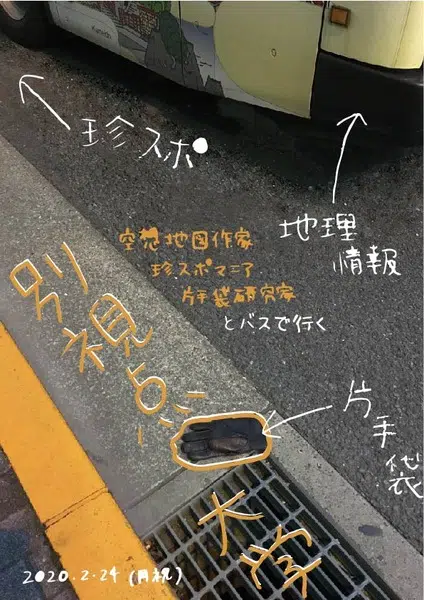 珍スポ
地理
情報
空想地図作家
珍スポマニア
片手袋研究家
とバスで行く
別視点
片手袋
大学
2020.2.24(月祝)